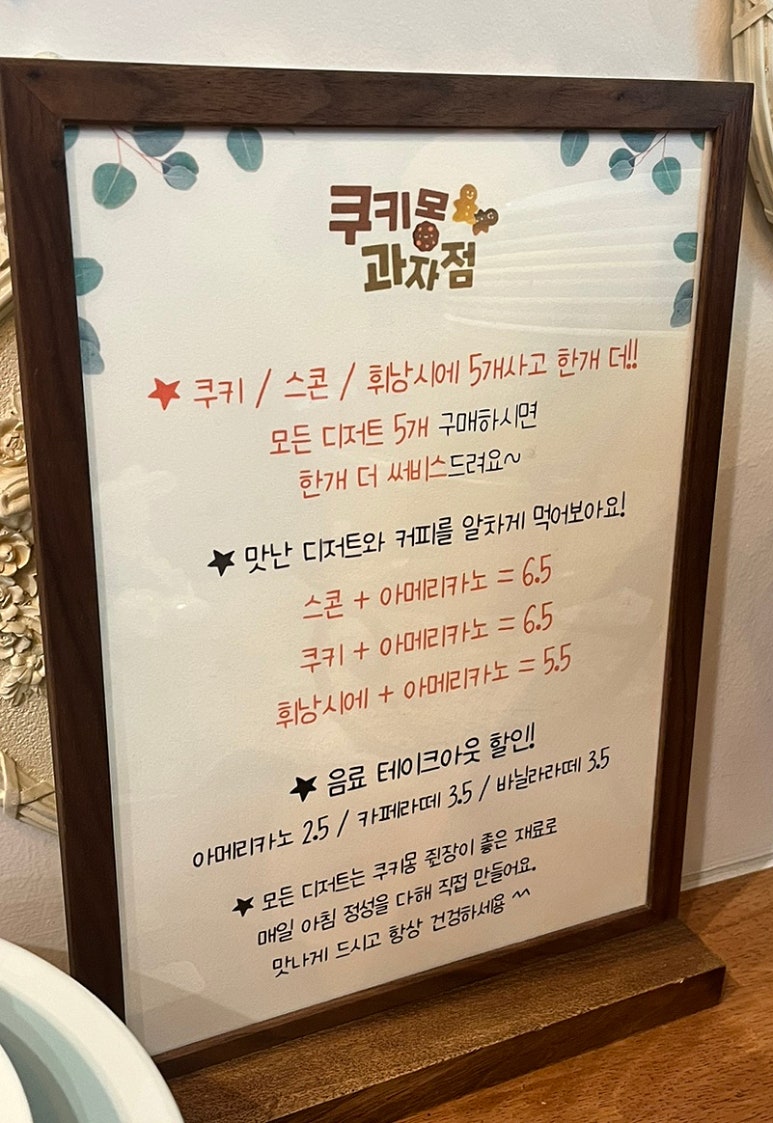 쿠키몽
과자점
★ 쿠키 / 스콘 / 휘낭시에 5개사고 한개 더!!
모든 디저트 5개 구매하시면
한개 더 써비스드려요~
★ 맛난 디저트와 커피를 알차게 먹어보아요!
스콘 + 아메리카노 = 6.5
쿠키 + 아메리카노 = 6.5
휘낭시에 + 아메리카노 = 5.5
★ 음료 테이크아웃 할인!
아메리카노 2.5 / 카페라떼 3.5 / 바닐라라떼 3.5
★ 모든 디저트는 쿠키몽 쥔장이 좋은 재료로
매일 아침 정성을 다해 직접 만들어요.
맛나게 드시고 항상 건강하세용 ^^